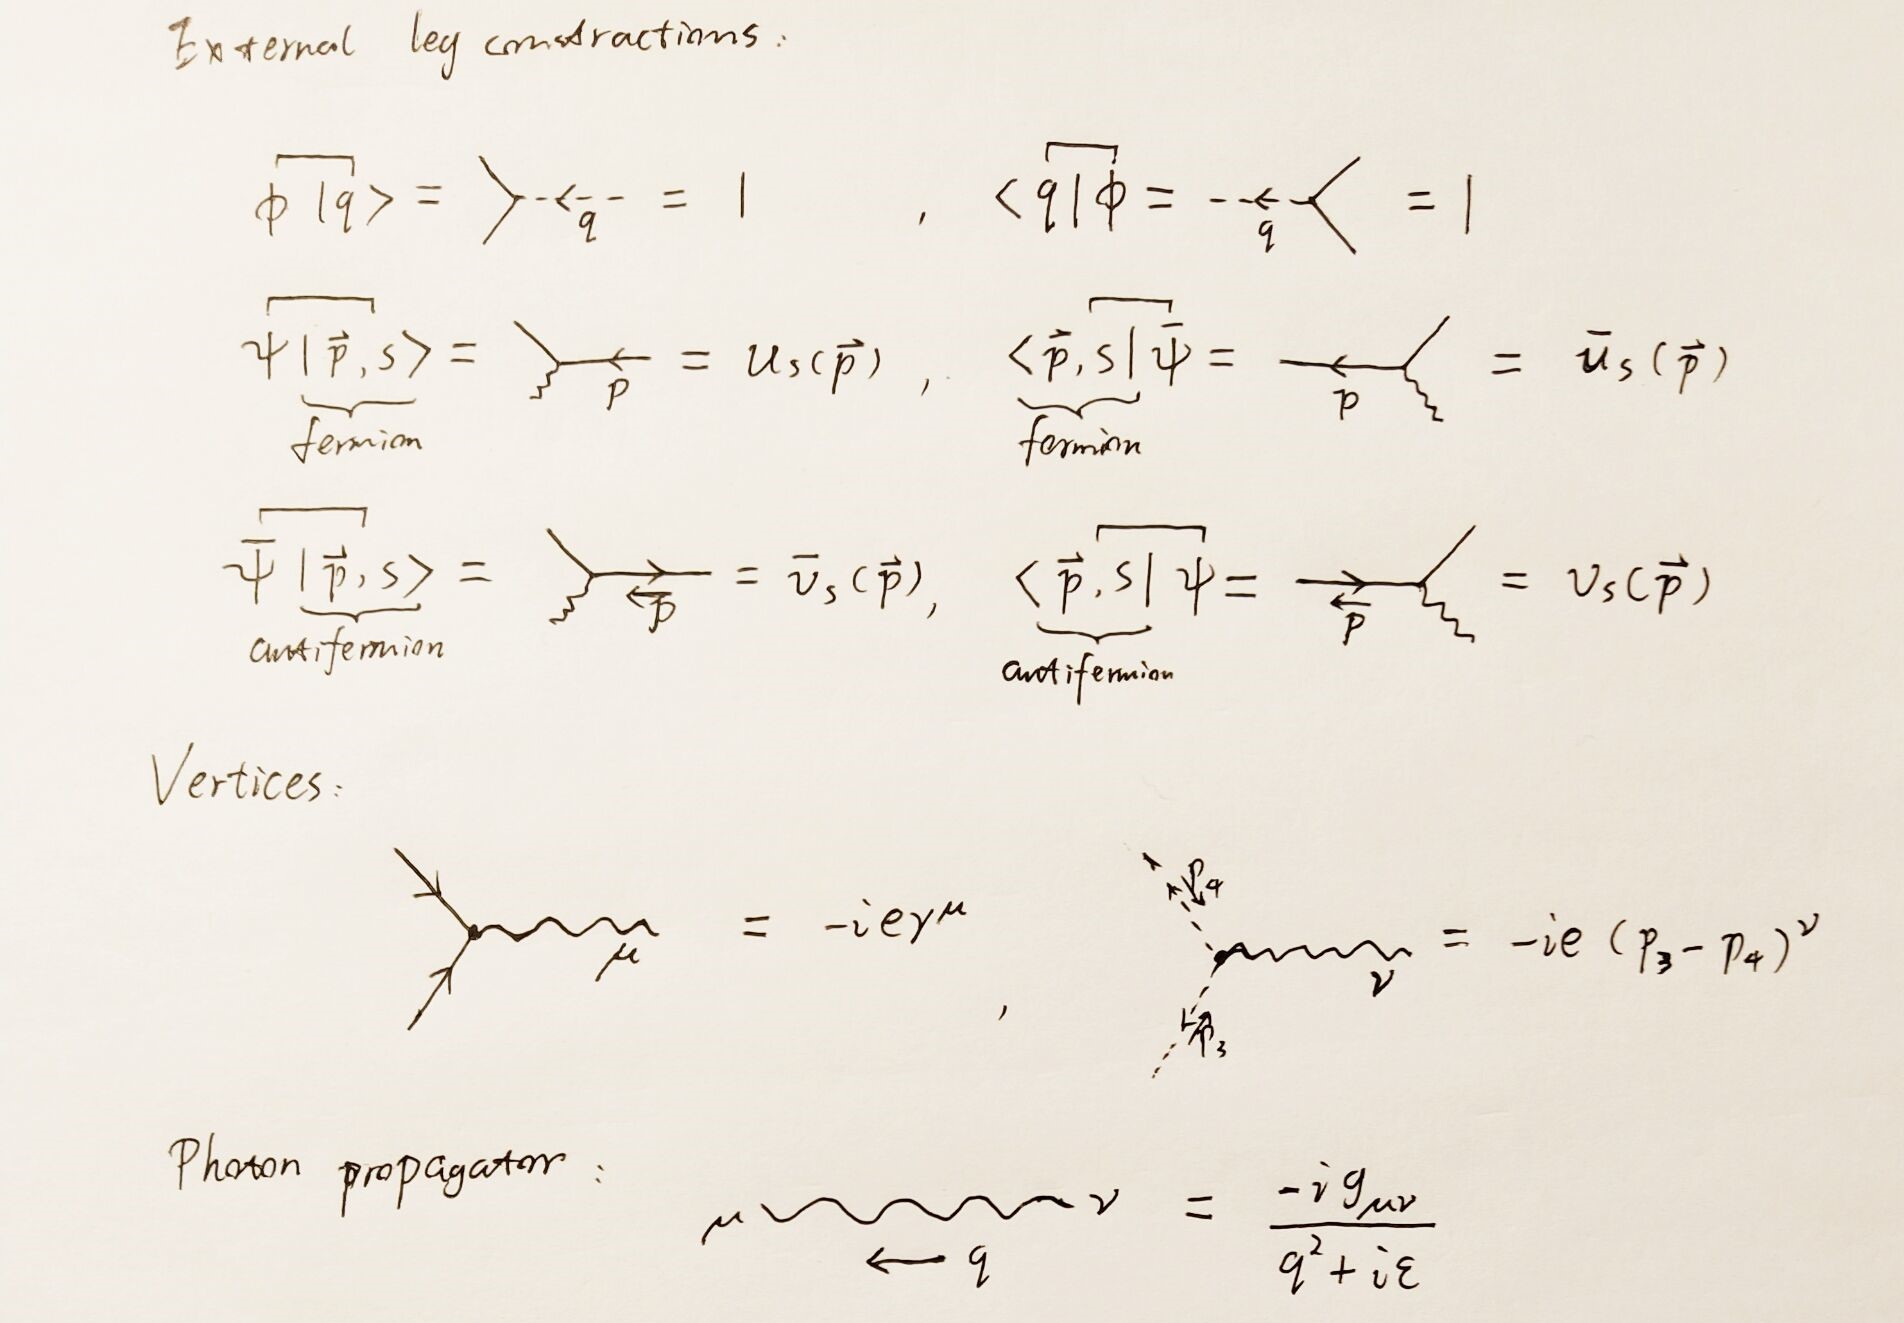 External leg constractions:
ϕ |q> = q = 1 , <q|ϕ = q = 1
ψ|p⃗,s> = p = u_s(p⃗) , <p⃗,s|ψ̄ = p = ū_s(p⃗)
fermion fermion
ψ̄ |p⃗,s> = p = v̄_s(p⃗), <p⃗,s|ψ = p = v_s(p⃗)
antifermion antifermion
Vertices:
μ = -ieγ^μ , p₄ p₃ ν = -ie (p₃ - p₄)^ν
Photon propagator:
μ ν = -i g_μν / q² + iε
q